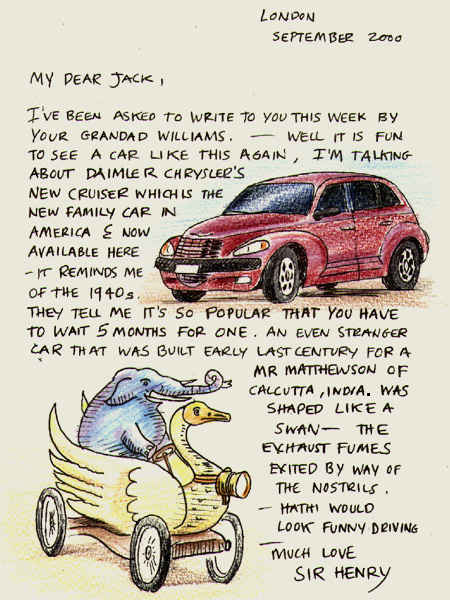 LONDON
SEPTEMBER 2000
MY DEAR JACK,
I'VE BEEN ASKED TO WRITE TO YOU THIS WEEK BY
YOUR GRANDAD WILLIAMS. — WELL IT IS FUN
TO SEE A CAR LIKE THIS AGAIN, I'M TALKING
ABOUT DAIMLER CHRYSLER'S
NEW CRUISER WHICH IS THE
NEW FAMILY CAR IN
AMERICA & NOW
AVAILABLE HERE
- IT REMINDS ME
OF THE 1940s.
THEY TELL ME IT'S SO POPULAR THAT YOU HAVE
TO WAIT 5 MONTHS FOR ONE. AN EVEN STRANGER
CAR THAT WAS BUILT EARLY LAST CENTURY FOR A
MR MATTHEWSON OF
CALCUTTA, INDIA. WAS
SHAPED LIKE A
SWAN — THE
EXHAUST FUMES
EXITED BY WAY OF
THE NOSTRILS.
- HATHI WOULD
LOOK FUNNY DRIVING
—
MUCH LOVE
SIR HENRY